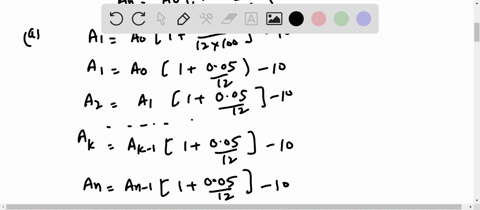 (a) A1 = A0 [1 + /12×100] - 10
A1 = A0 (1 + 0.05/12) - 10
A2 = A1 [1 + 0.05/12] - 10
Ak = Ak-1 [1 + 0.05/12] - 10
An = An-1 [1 + 0.05/12] - 10